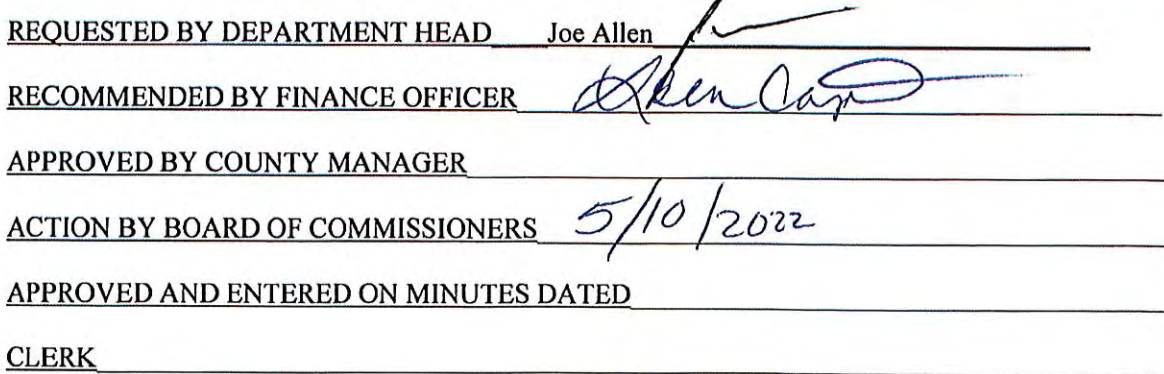 REQUESTED BY DEPARTMENT HEAD Joe Allen
RECOMMENDED BY FINANCE OFFICER
APPROVED BY COUNTY MANAGER
ACTION BY BOARD OF COMMISSIONERS 5/10/2022
APPROVED AND ENTERED ON MINUTES DATED
CLERK